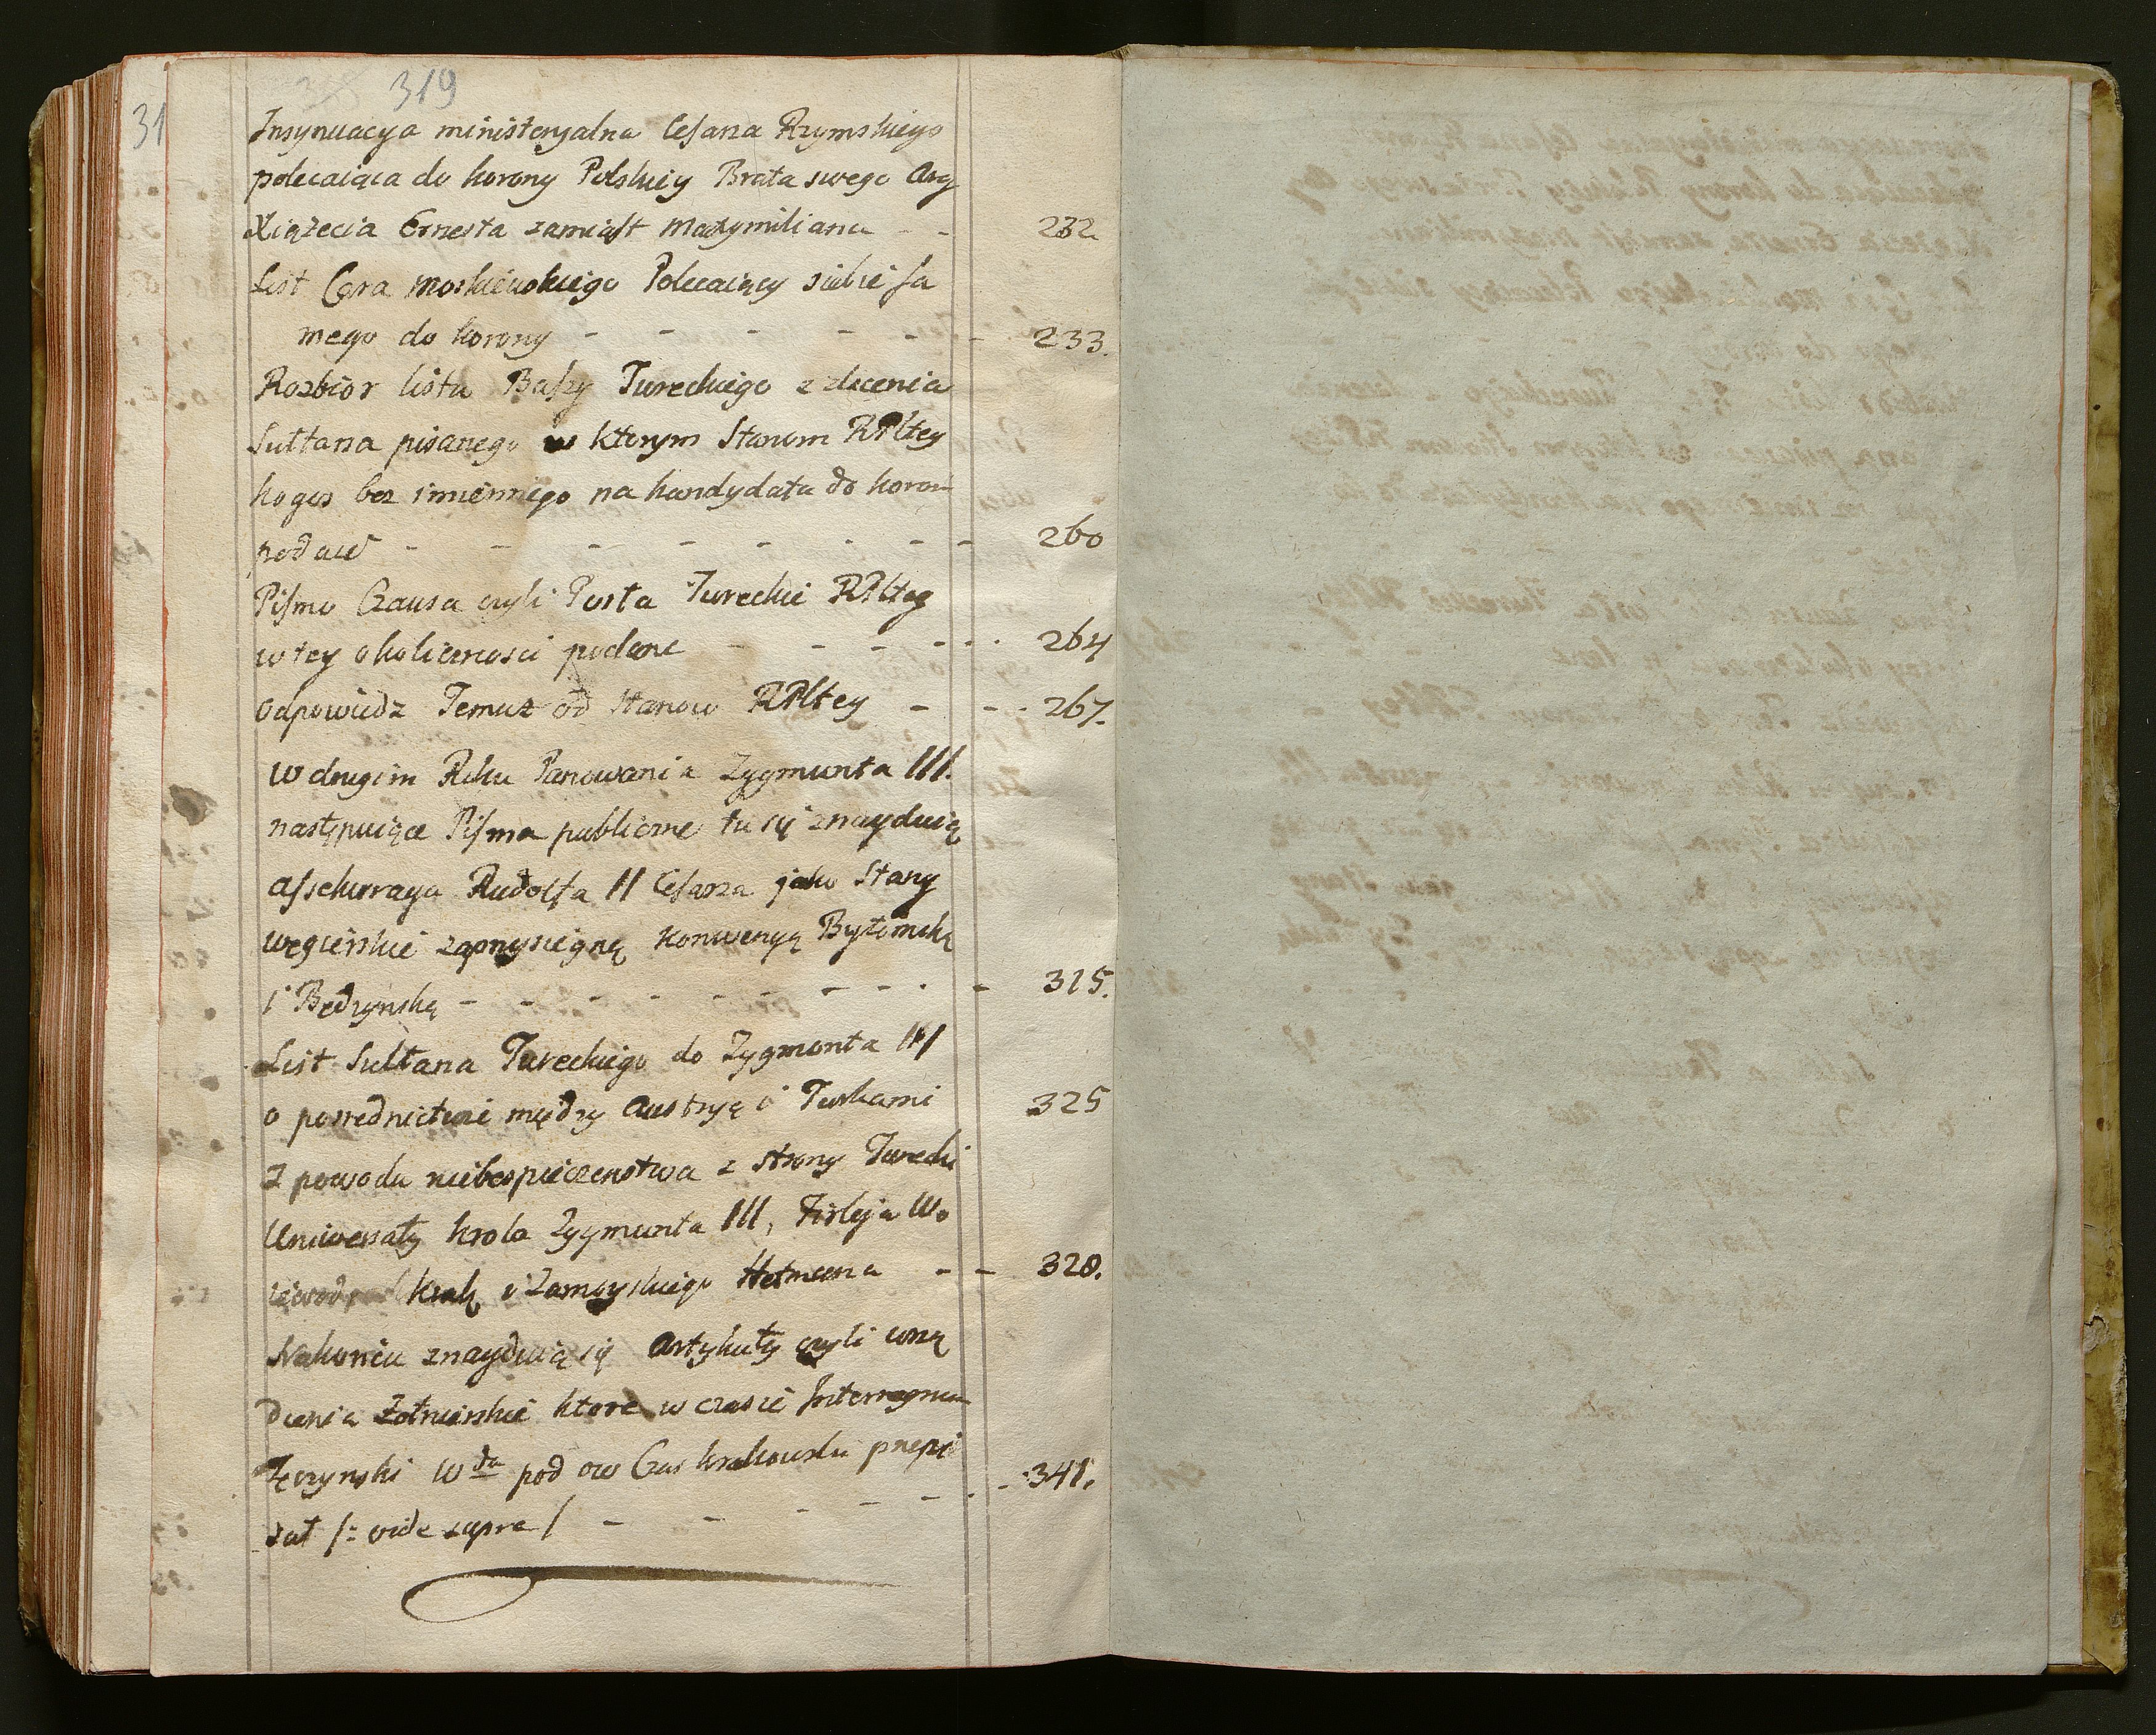 319
31
Insynuacya ministeryalna Cesarza Rzymskiego
polecaiąca do korony Polskiey Brata swego Arcy
Xiążecia Ernesta zamiast Maxymiliana - - 232
List Cara Moskiewskiego Polecaiący siebie sa
mego do korony - - - - - - 233.
Rozbior listu Baszy Tureckiego z zlecenia
Sułtana pisanego w ktorym Stanom RPltey
kogos bez imiennego na kandydata do koron
podaie - - - - - - - - 260
Pismo Czausa czyli Posła Tureckie RPltey
w tey okoliczności podane - - - - - 264
Odpowiedz Temuz od Stanow RPltey - - - 267.
W drugim Roku Panowania Zygmunta III.
następuiące Pisma publiczne tu się znayduią
Assekuracya Rudolfa II Cesarza jako Stany
węgierskie zaprzysięgną Konwencyą Bytomską
i Bedzynską - - - - - - - - - 315.
List Sułtana Tureckiego do Zygmunta III
o posrednictwie między Austryą i Turkami 325
Z powodu niebespieczenstwa z strony Turecki
Uniwersały krola Zygmunta III, Firleja Wo
iewod Krak i Zamoyskiego Hetmana - - 328.
Nakoniec znayduią się Artykuły czyli urzą
dzenia Żołnierskie ktore w czasie Interregnum
Tęczynski Wda pod ow Czas krakowski przepi
sał /: vide supra / - - - - - - - 341.